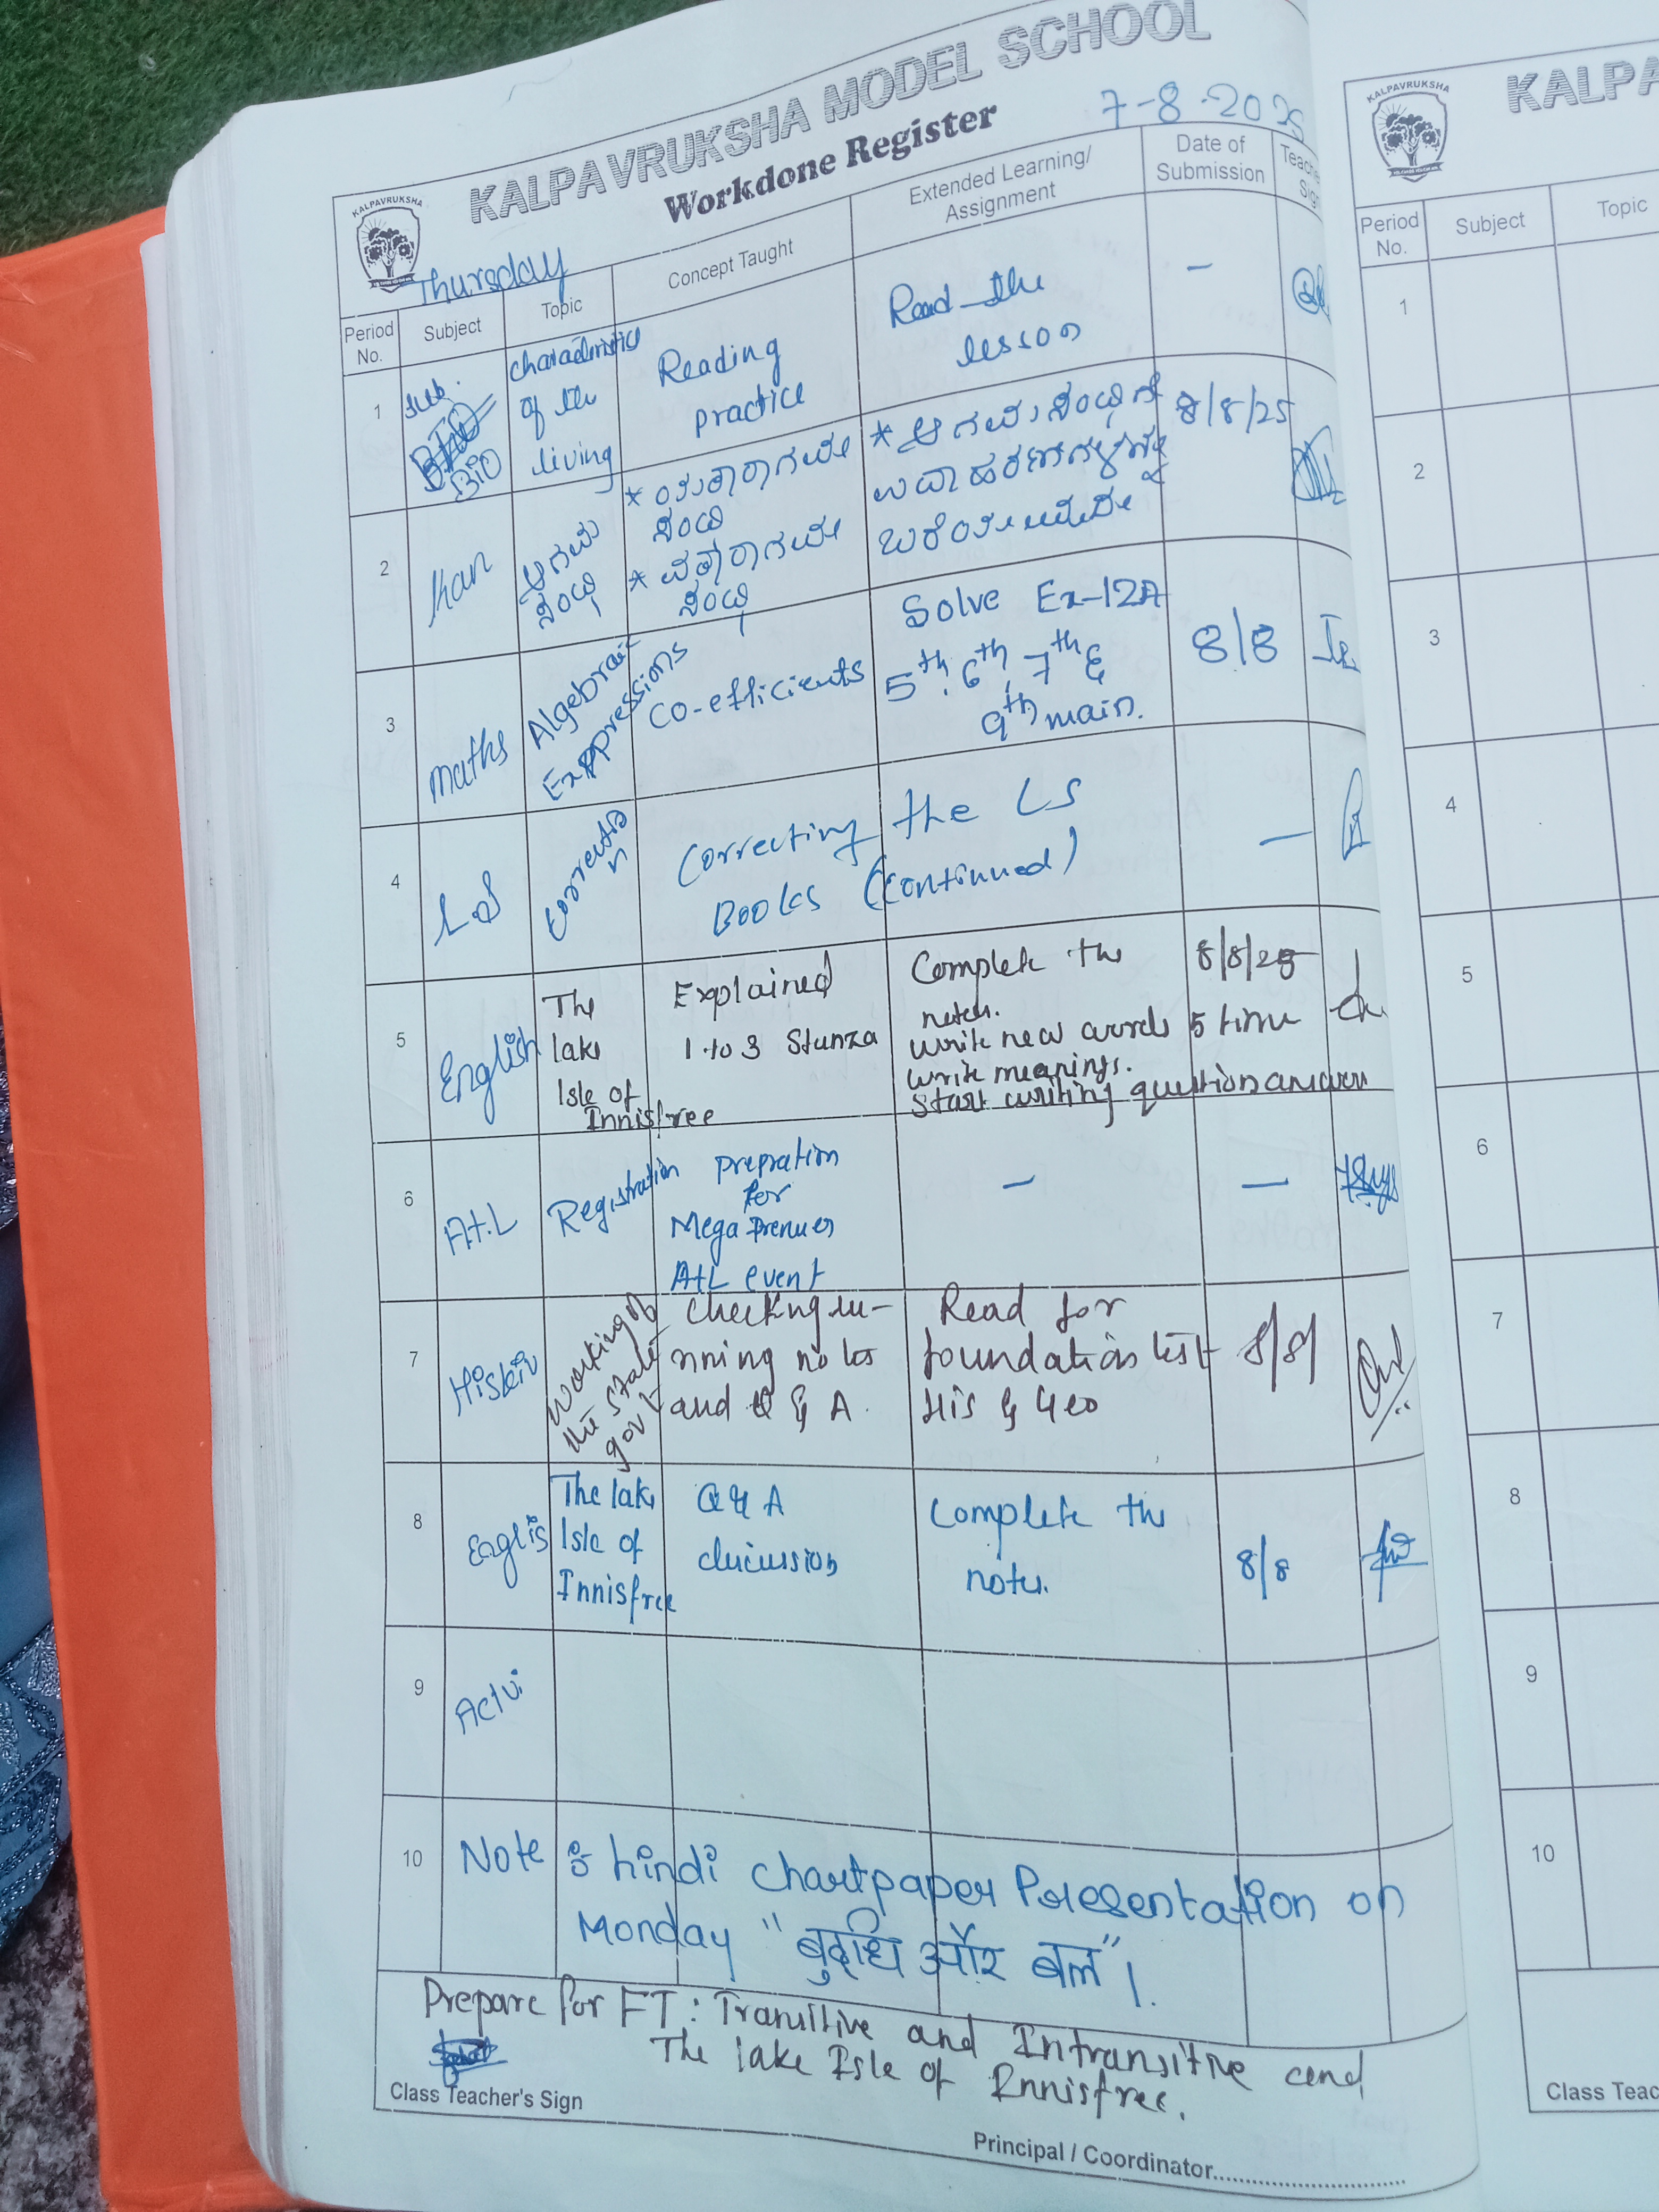 KALPAVRUKSHA MODEL SCHOOL
Workdone Register
7-8-2025
KALPAVRUKSHA
Thursday
Period No.
Subject
Topic
Concept Taught
Extended Learning/
Assignment
Date of
Submission
1
Sub.
BIO
characteristics
of the
living
Reading
practice
Read the
lesson
-
2
Kan
ಆಗಮ
ಸಂಧಿ
* ಯಕಾರಾಗಮ
ಸಂಧಿ
* ವಕಾರಾಗಮ
ಸಂಧಿ
* ಆಗಮ ಸಂಧಿಗೆ
ಉದಾಹರಣೆಗಳನ್ನು
8/8/25
3
maths
Algebraic
Expressions
co-efficients
Solve Ex-12A
5th, 6th, 7th &
9th main.
8/8
4
LS
correction
Correcting the LS
Books (continued)
—
5
English
The
lake
Isle of
Innisfree
Explained
1 to 3 Stanza
Complete the
notes.
write new words 5 time
write meanings.
Start writing question answer
8/8/25
6
A.t.L
Registration
prepration
for
Mega
AtL event
—
—
7
working of
the state
govt
checking ru-
nning notes
and Q & A.
Read for
foundation test
His & Geo
8/8/
8
Englis
The lake
Isle of
Innisfree
Q & A
discussion
Complete the
notes.
8/8
9
Activi
10
Note : hindi Chartpaper Presentation on
Monday "बुद्धि और बल"।
Prepare for FT : Transitive and Intransitive and
The lake Isle of Innisfree.
Class Teacher's Sign
Principal / Coordinator
KALPAVRUKSHA
KALPA
Period No.
Subject
Topic
1
2
3
4
5
6
7
8
9
10
Class Teac